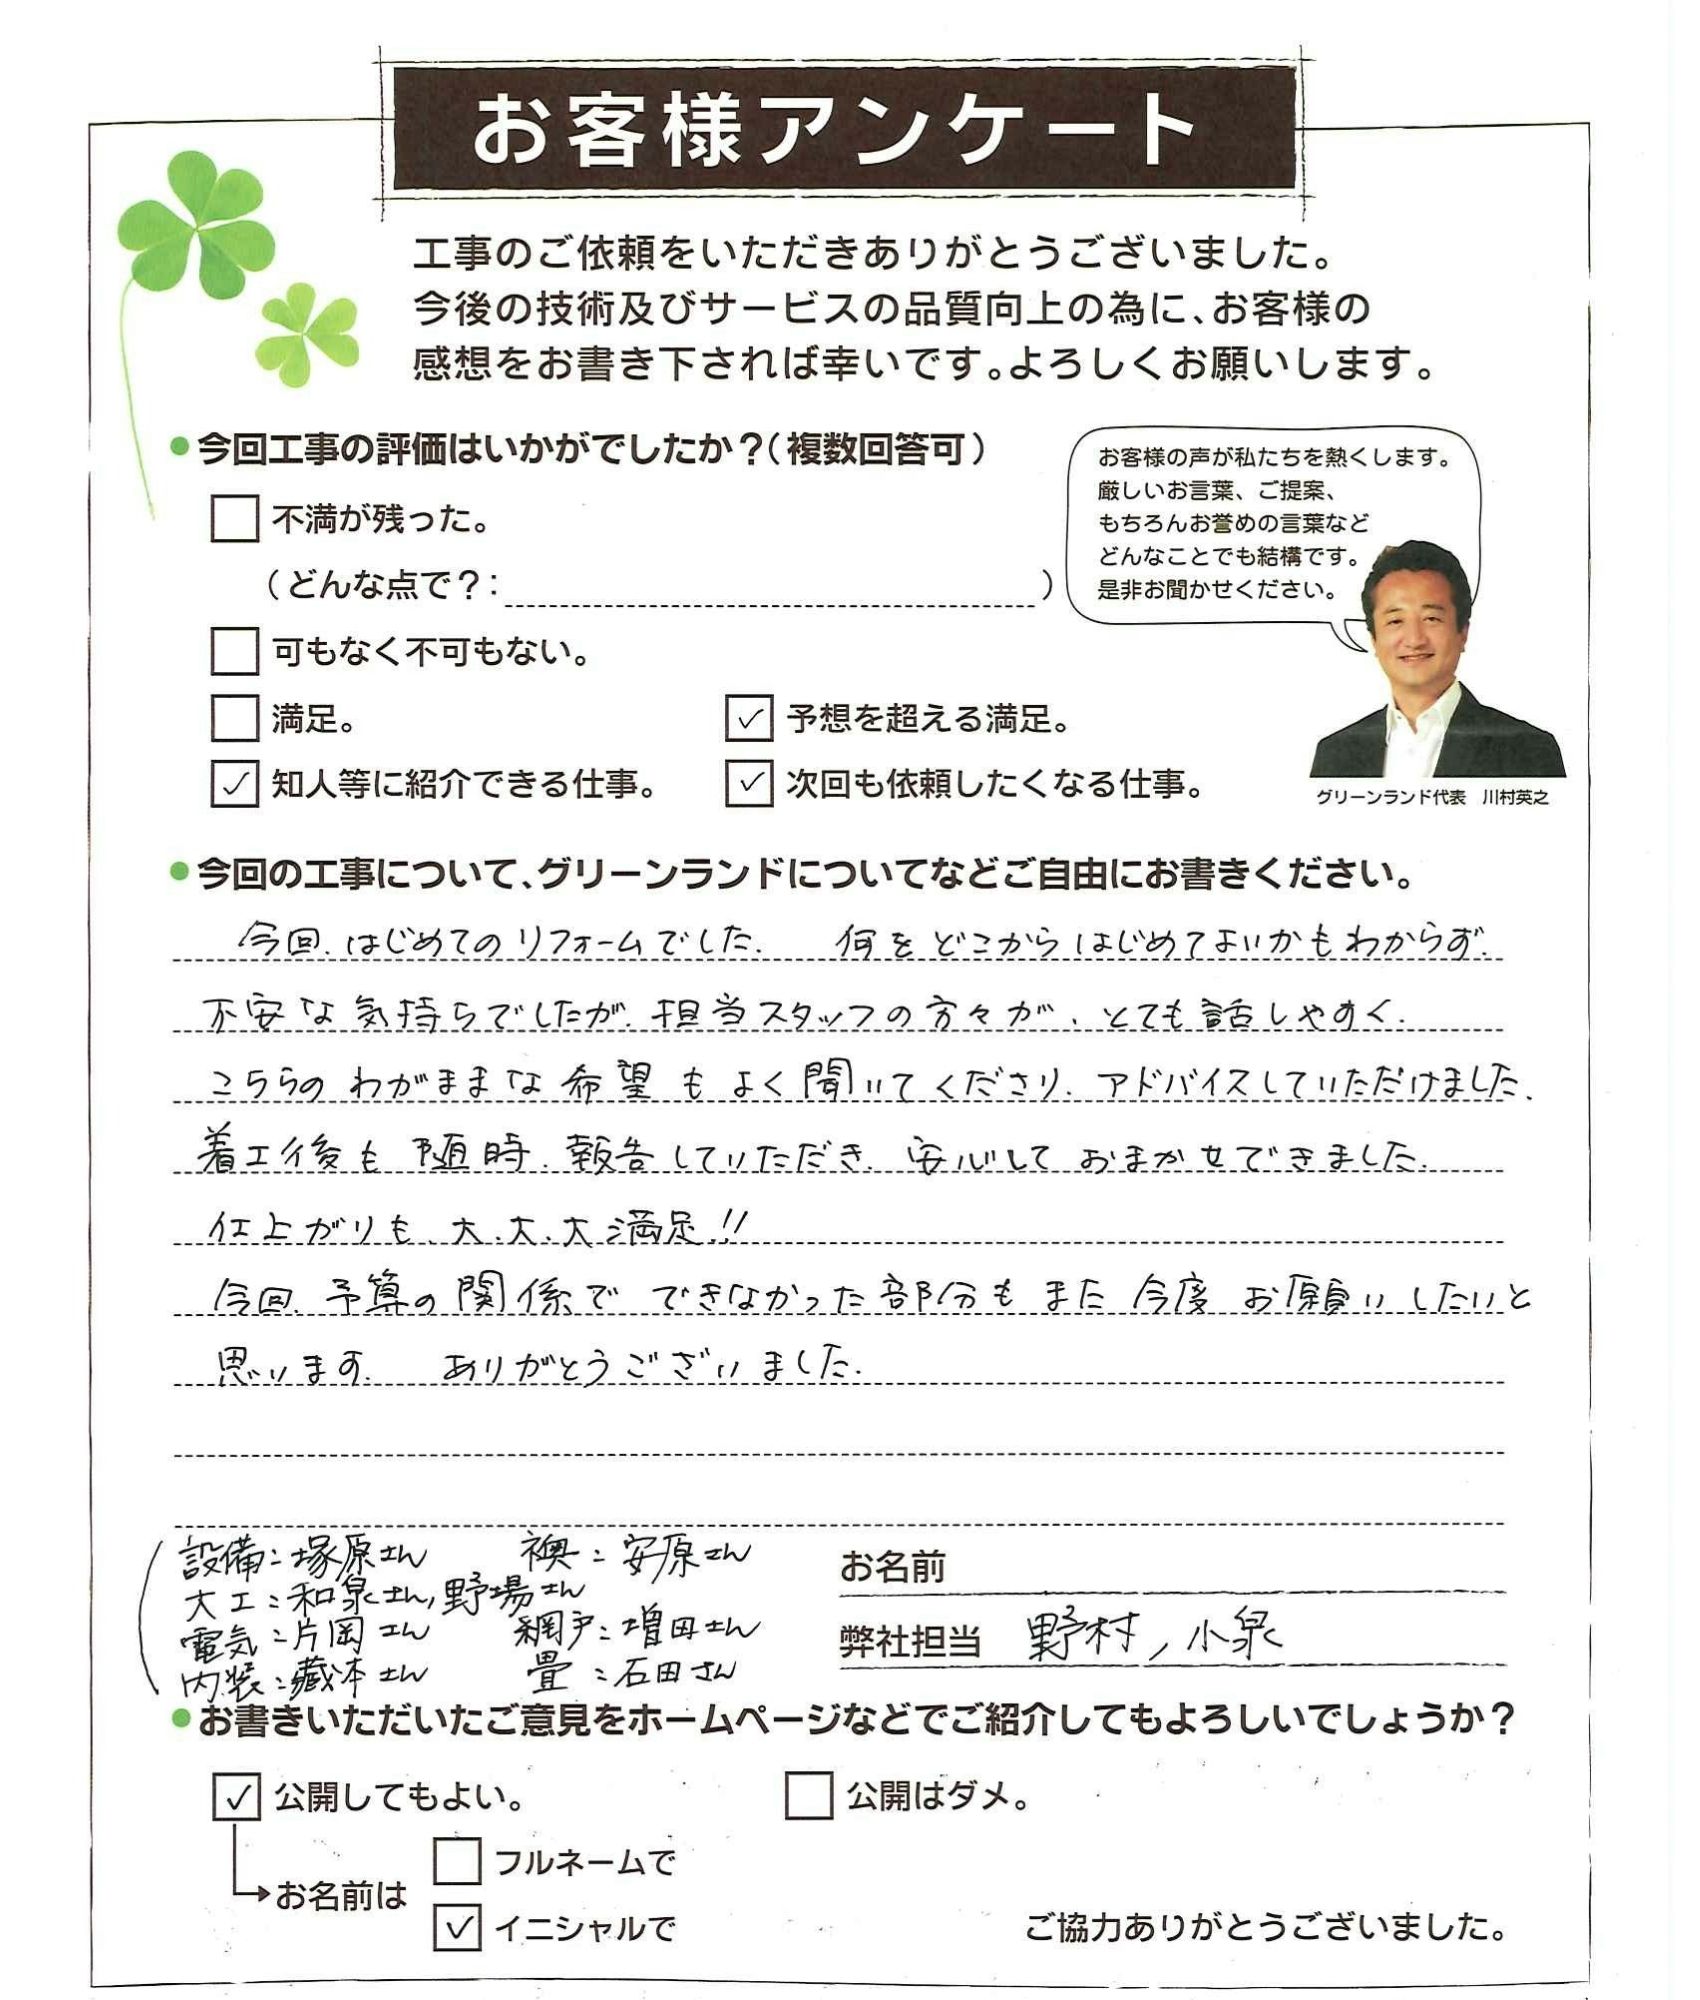 お客様アンケート
工事のご依頼をいただきありがとうございました。
今後の技術及びサービスの品質向上の為に、お客様の
感想をお書き下されば幸いです。よろしくお願いします。
●今回工事の評価はいかがでしたか？（複数回答可）
不満が残った。
（どんな点で？：　）
可もなく不可もない。
満足。
✓ 予想を超える満足。
✓ 知人等に紹介できる仕事。
✓ 次回も依頼したくなる仕事。
お客様の声が私たちを熱くします。
厳しいお言葉、ご提案、
もちろんお誉めの言葉など
どんなことでも結構です。
是非お聞かせください。
グリーンランド代表　川村英之
●今回の工事について、グリーンランドについてなどご自由にお書きください。
今回、はじめてのリフォームでした。　何をどこからはじめてよいかもわからず、
不安な気持ちでしたが、担当スタッフの方々が、とても話しやすく、
こちらのわがままな希望もよく聞いてくださり、アドバイスしていただけました。
着工後も随時、報告していただき、安心しておまかせできました。
仕上がりも、大、大、大満足!!
今回、予算の関係でできなかった部分もまた今度お願いしたいと
思います。　ありがとうございました。
設備：塚原さん　襖：安原さん
大工：和泉さん，野場さん
電気：片岡さん　網戸：増田さん
内装：藏本さん　畳：石田さん
お名前
弊社担当　野村，小泉
●お書きいただいたご意見をホームページなどでご紹介してもよろしいでしょうか？
✓ 公開してもよい。
公開はダメ。
お名前は
フルネームで
✓ イニシャルで
ご協力ありがとうございました。